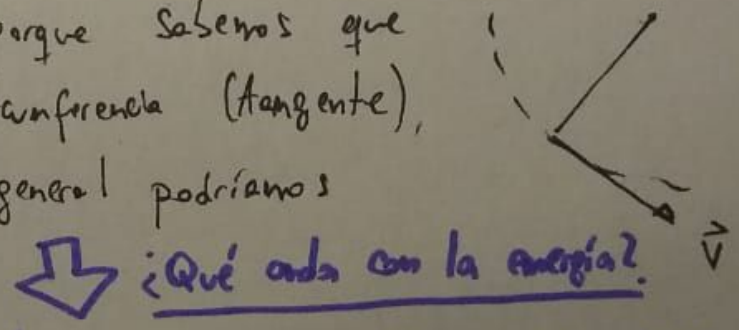 porque sabemos que
cunferencia (tangente),
general podríamos
v
¿Qué onda con la energía?